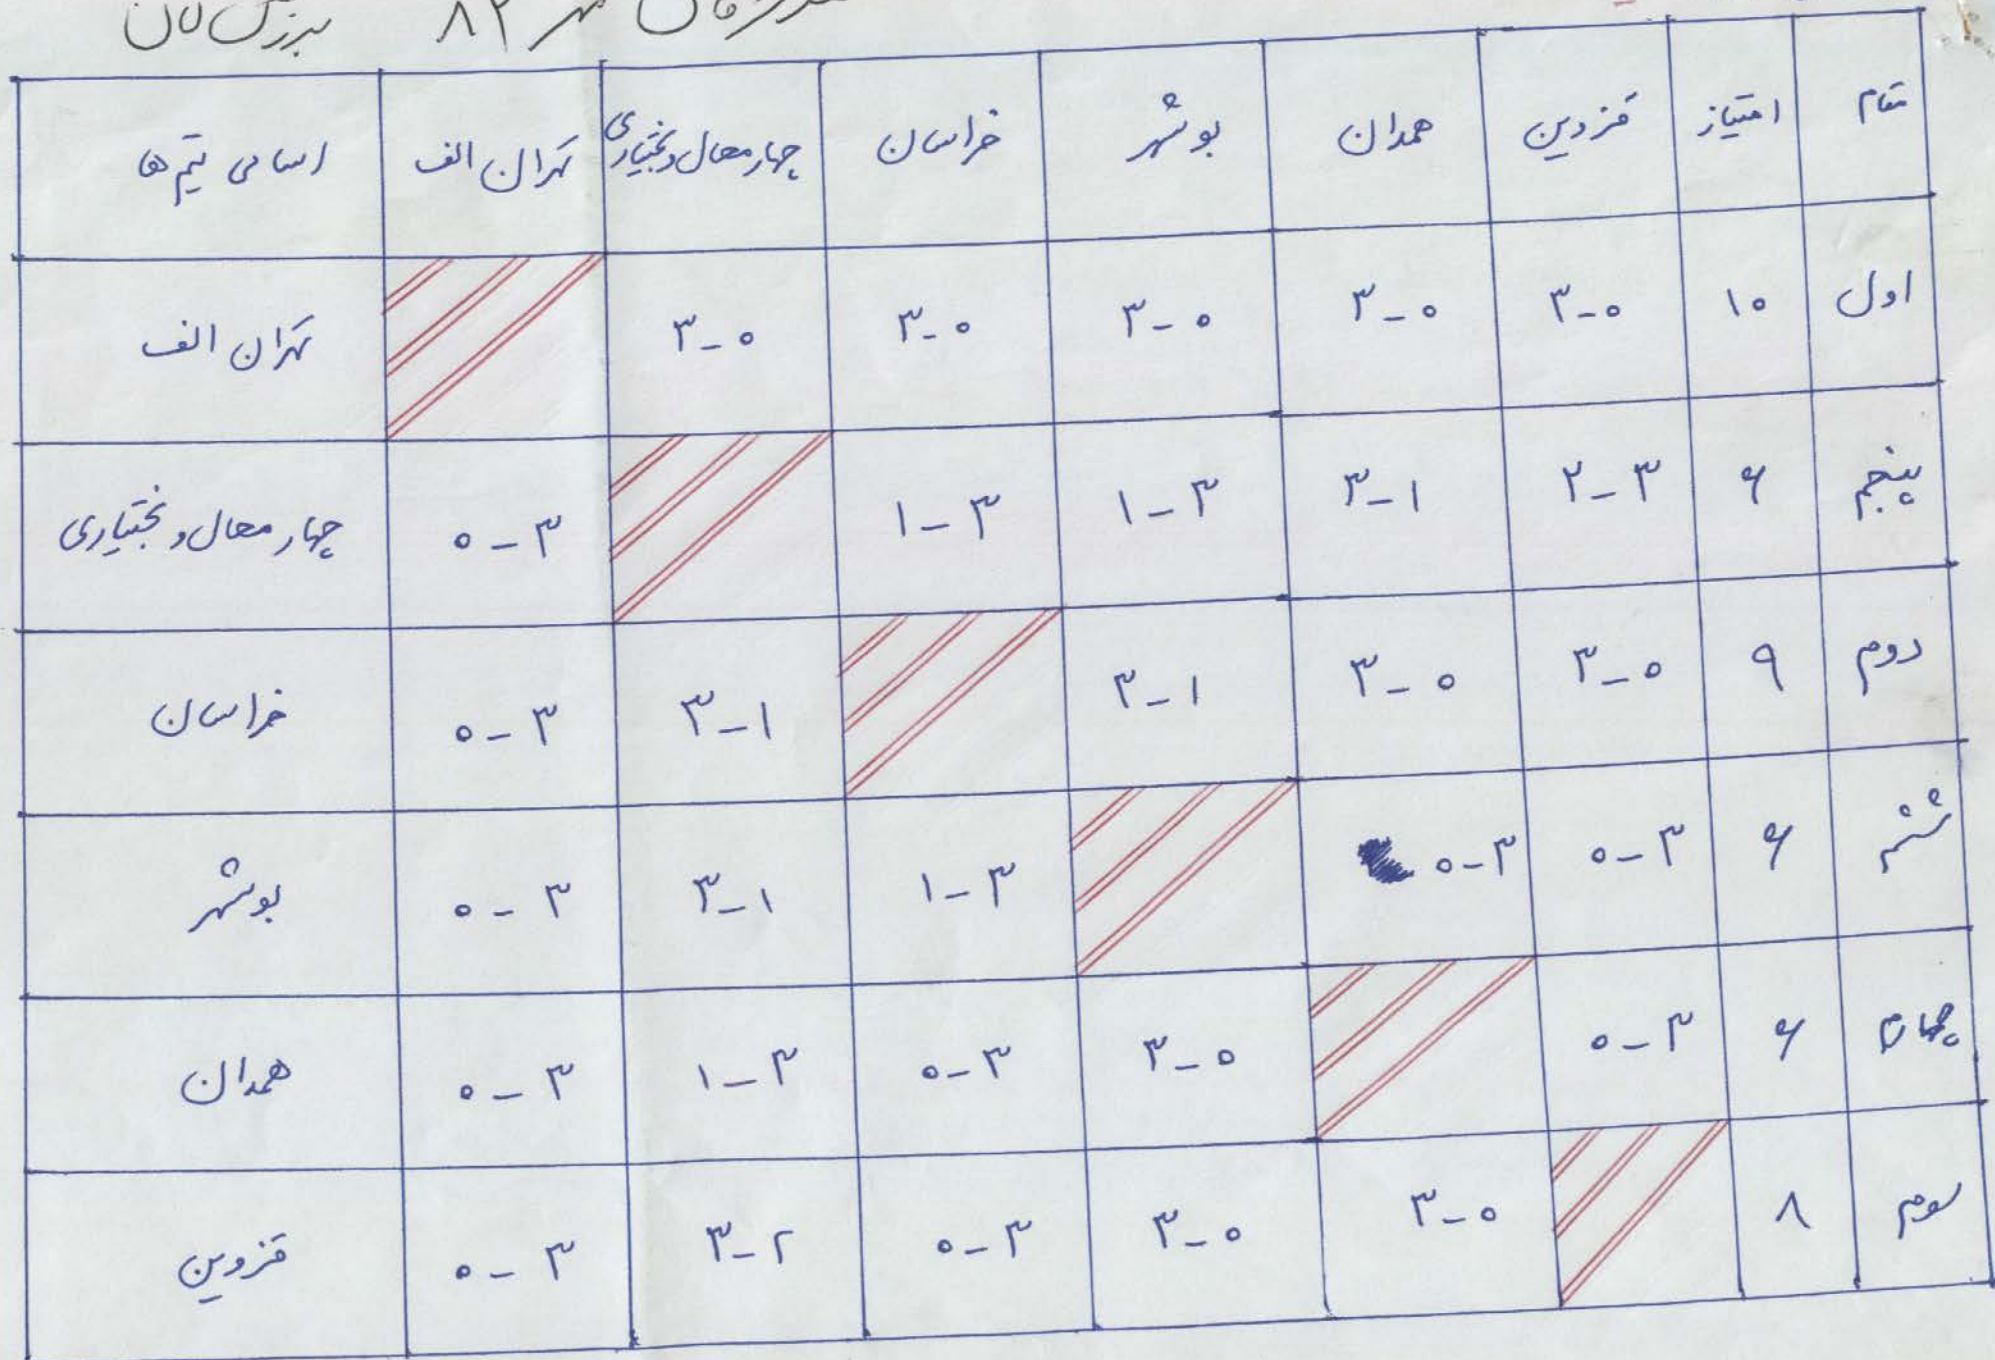 مهر ۸۲ بزرگسالان
اسامی تیم ها تهران الف چهارمحال و بختیاری خراسان بوشهر همدان قزوین امتیاز مقام
تهران الف ۳-۰ ۳-۰ ۳-۰ ۳-۰ ۳-۰ ۱۰ اول
چهارمحال و بختیاری ۰-۳ ۱-۳ ۱-۳ ۳-۱ ۲-۳ ۶ پنجم
خراسان ۰-۳ ۳-۱ ۳-۱ ۳-۰ ۳-۰ ۹ دوم
بوشهر ۰-۳ ۳-۱ ۱-۳ ۰-۳ ۰-۳ ۶ ششم
همدان ۰-۳ ۱-۳ ۰-۳ ۳-۰ ۰-۳ ۶ چهارم
قزوین ۰-۳ ۳-۲ ۰-۳ ۳-۰ ۳-۰ ۸ سوم